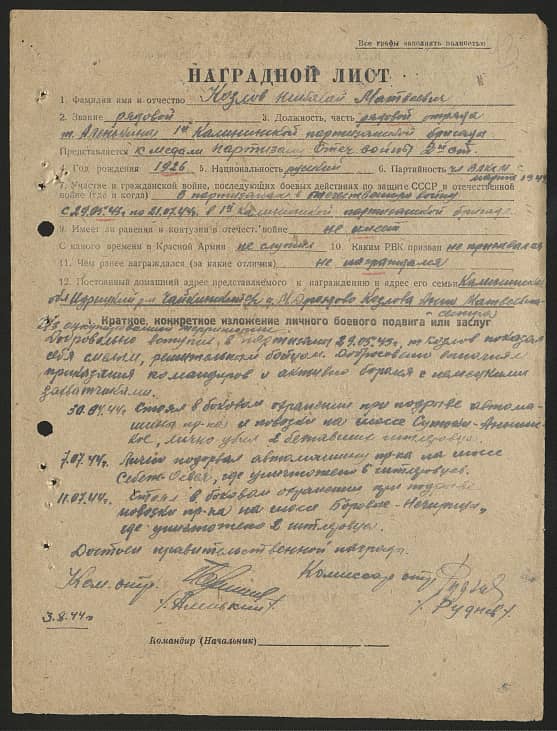 Все графы заполнять полностью
НАГРАДНОЙ ЛИСТ
1. Фамилия имя и отчество Козлов Матвеевич
2. Звание рядовой 3. Должность, часть рядовой отряда
1й Калининской партизанской бригады
Представляется к медали партизану Отеч войны 2й ст.
4. Год рождения 1926 5. Национальность русский 6. Партийность чл ВЛКСМ с
марта 1944
7. Участие в гражданской войне, последующих боевых действиях по защите СССР и отечественной
войне (где и когда) В партизанах в отечественную войну
с 29.05.43г по 21.07.44г. в 1й калининской партизанской бригаде
9. Имеет ли ранения и контузии в отечест. войне не имеет
С какого времени в Красной Армии не служил 10. Каким РВК призван не призывался
11. Чем ранее награждался (за какие отличия) не награждался
12. Постоянный домашний адрес представляемого к награждению и адрес его семьи Калининская
обл Идрицкий р-н с/с д. М. Дроздово Козлова Матвеевна-
сестра
1. Краткое, конкретное изложение личного боевого подвига или заслуг
Добровольно вступив в партизаны 29.05.43г., т Козлов показал
себя смелым, решительным бойцом. Добросовестно выполнял
приказания командиров и активно боролся с немецкими
захватчиками.
30.04.44г. Стоял в боковом охранении при подрыве автома-
шины пр-ка и повозки на шоссе
лично убил 2 бежавших гитлеровца.
7.07.44г. Лично подорвал автомашину пр-ка на шоссе
Себеж-Освея, где уничтожено 6 гитлеровцев.
11.07.44г. Стоял в боковом охранении при подрыве
повозки пр-ка на шоссе
где уничтожено 2 гитлеровца.
Достоин правительственной награды.
Ком. отр. Комиссар отр.
/Руднев/.
3.8.44г.
Командир (Начальник)